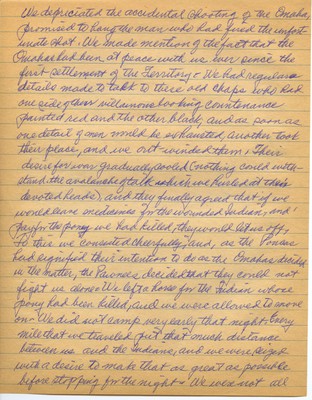 We depreciated the accidental shooting of the Omaha,
promised to hang the man who had fired the unfort-
unate shot. We made mention of the fact that the
Omahas had been at peace with us ever since the
first settlement of the Territory. We had regular
details made to talk to these old chaps who had
one side of their villainous looking countenance
painted red and the other black, and as soon as
one detail of men would be exhausted, another took
their place, and we out-winded them. Their
desire for war gradually cooled (nothing could with-
stand the avalanche of talk which we hurled at their
devoted heads) and they finally agreed that if we
would leave medicines for the wounded Indian, and
pay for the pony we had killed, they would let us off.
To this we consented cheerfully, and, as the Poncas
had signified their intention to do as the Omahas decided
in the matter, the Pawnees decided that they could not
fight us alone. We left a horse for the Indian whose
pony had been killed, and we were allowed to move
on. We did not camp very early that night. Every
mile that we traveled put that much distance
between us and the Indians, and we were seized
with a desire to make that as great as possible
before stopping for the night. We were not all